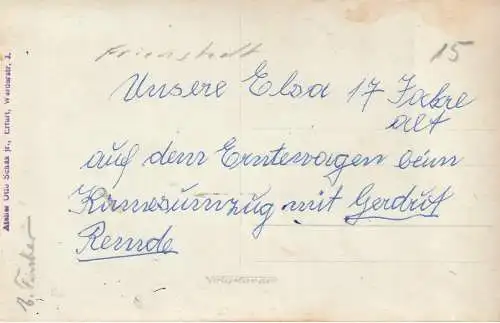 Frienstedt
15
Unsere Elsa 17 Jahre
alt
auf dem Erntewagen beim
Kirmesumzug mit Gerdrut
Remde
Atelier Otto Schaa jr., Erfurt, Werderstr. 3.